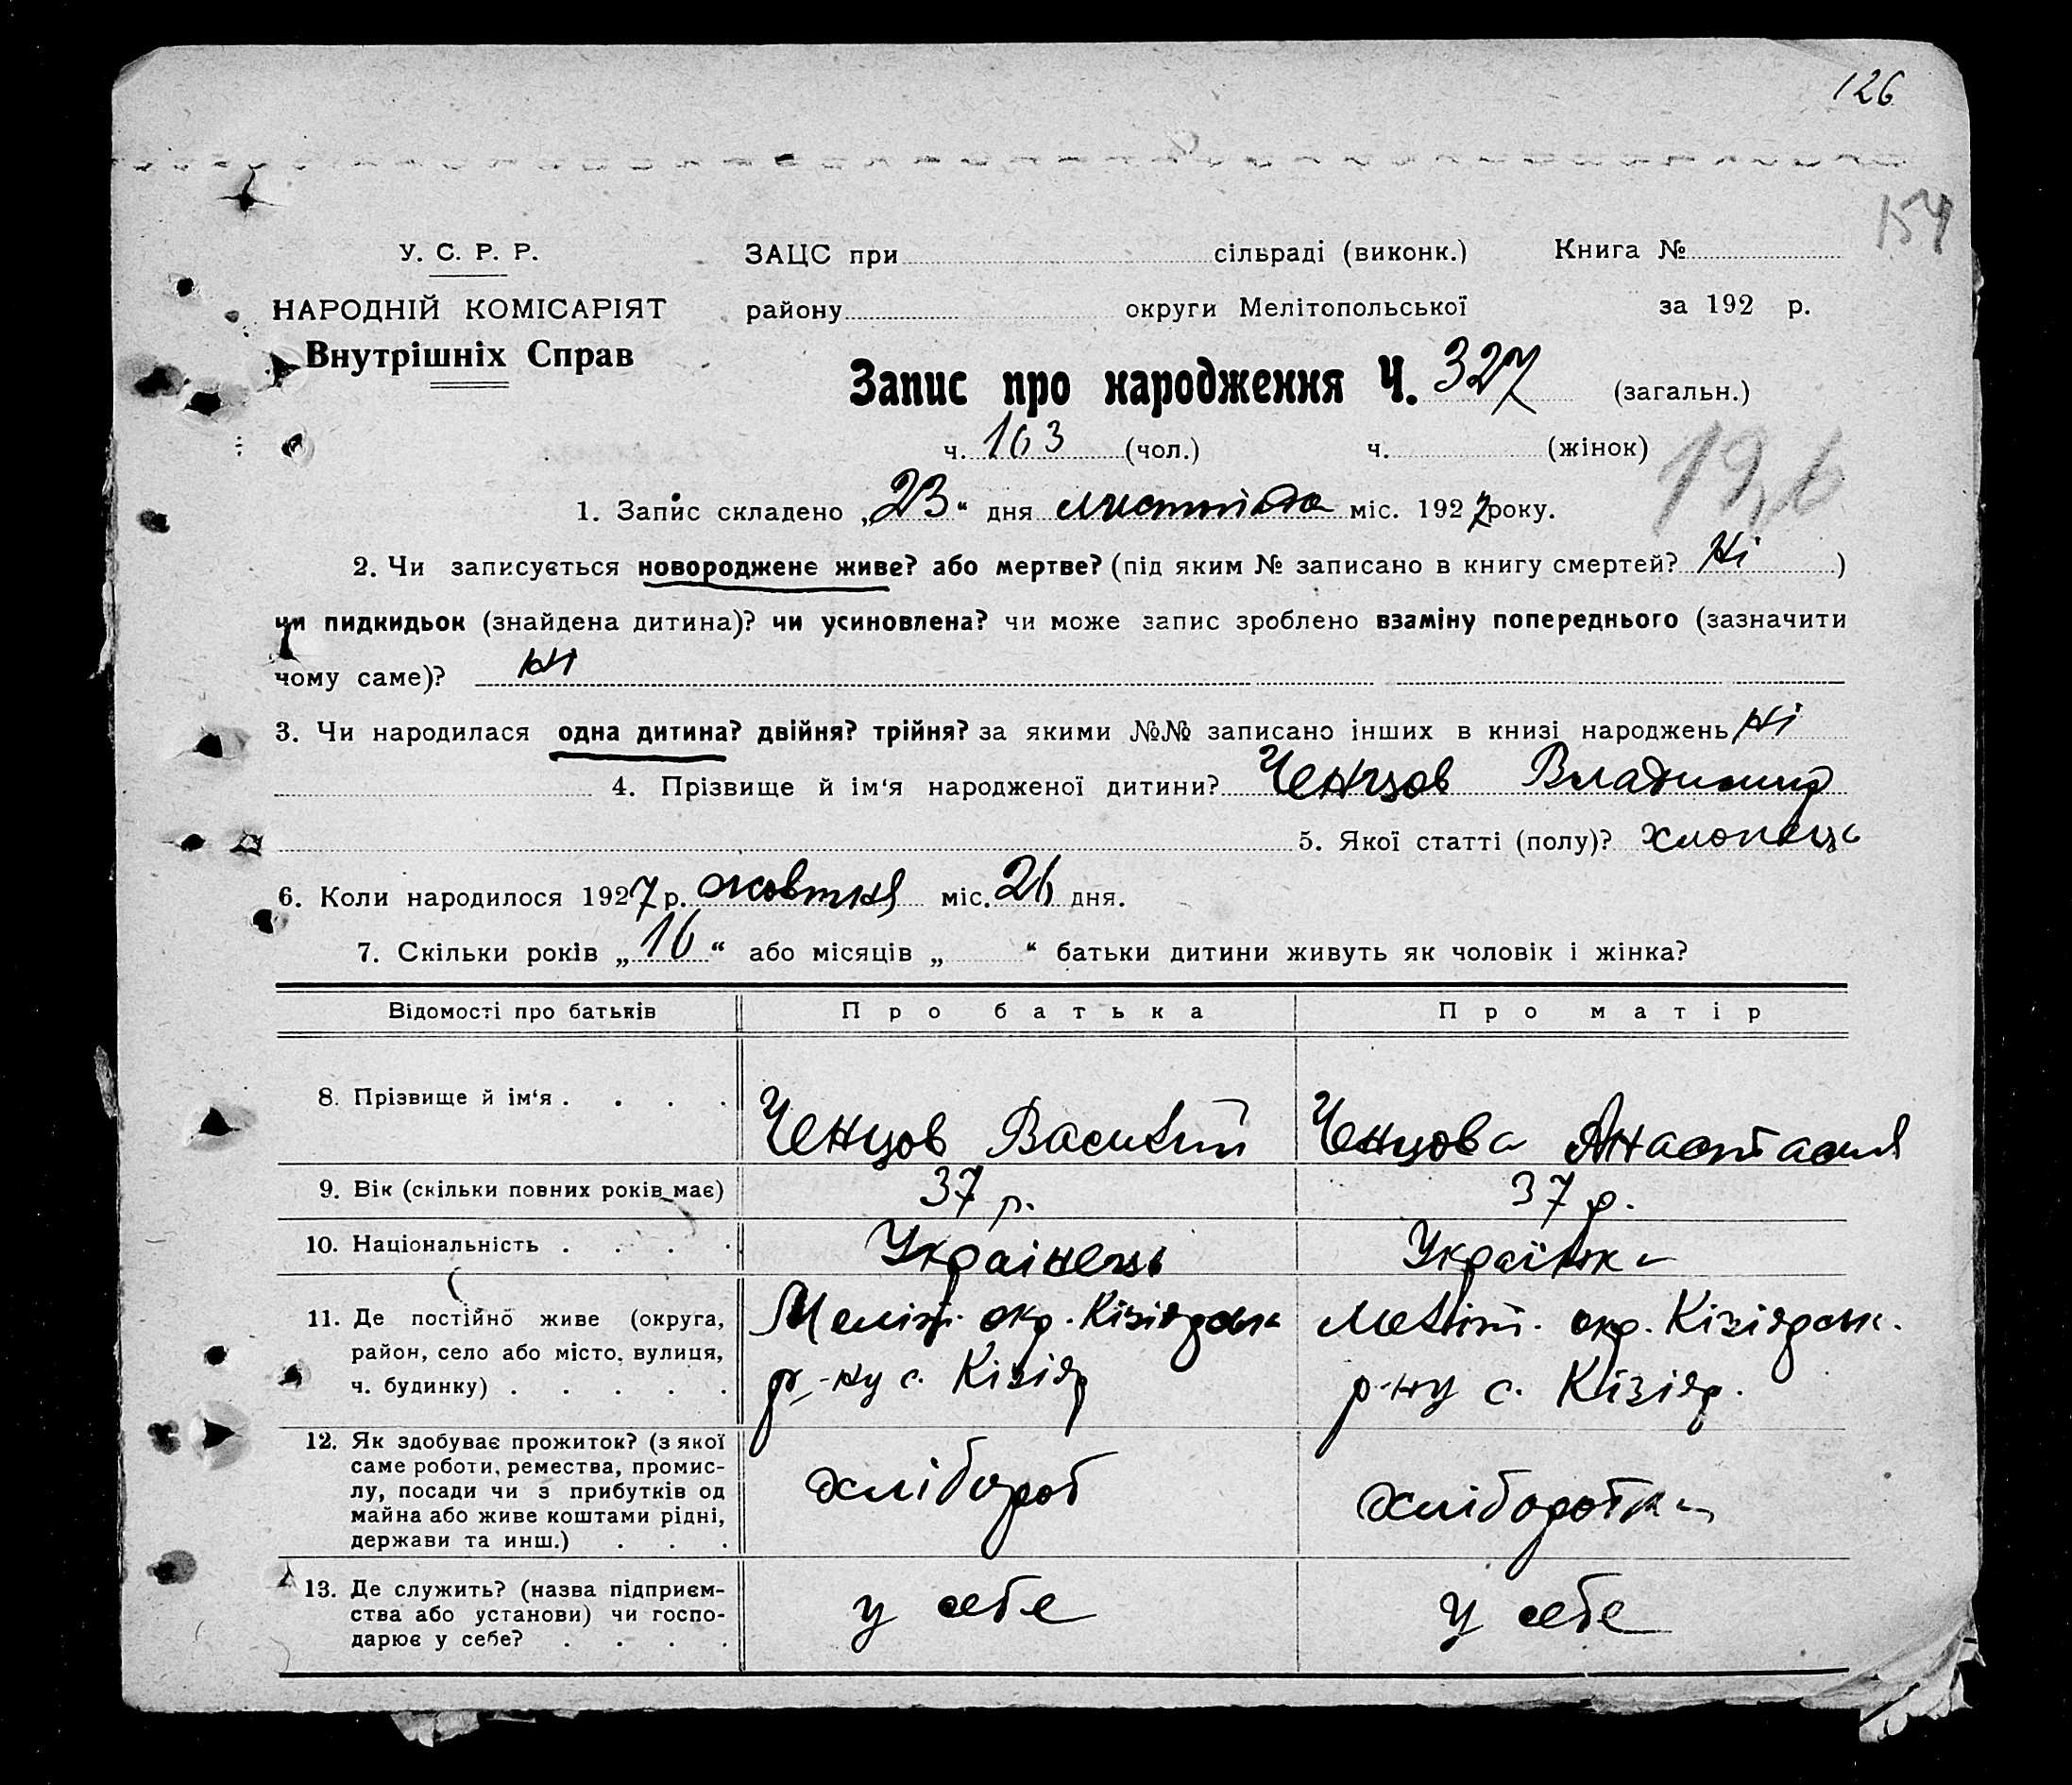 126
154
У. С. Р. Р. ЗАЦС при сільраді (виконк.) Книга №
НАРОДНІЙ КОМІСАРІЯТ району округи Мелітопольської за 192 р.
Внутрішніх Справ
Запис про народження Ч. 327 (загальн.)
ч. 163 (чол.) ч. (жінок)
1. Запис складено „23“ дня листопада міс. 1927 року.
2. Чи записується новороджене живе? або мертве? (під яким № записано в книгу смертей? Ні )
чи пидкидьок (знайдена дитина)? чи усиновлена? чи може запис зроблено взаміну попереднього (зазначити
чому саме)? ні
3. Чи народилася одна дитина? двійня? трійня? за якими №№ записано інших в книзі народжень Ні
4. Прізвище й ім‘я народженої дитини? Ченцов Владимир
5. Якої статті (полу)? хлопець
6. Коли народилося 1927 р. жовтня міс. 26 дня.
7. Скільки років „16“ або місяців „ “ батьки дитини живуть як чоловік і жінка?
Відомості про батьків Про батька Про матір
8. Прізвище й ім‘я . . . . Ченцов Василий Ченцова Анастасия
9. Вік (скільки повних років має) 37 р. 37 р.
10. Національність . . . . Українець Українка
11. Де постійно живе (округа, Меліт. окр. Кізіярськ Меліт. окр. Кізіярськ.
район, село або місто, вулиця, р-ну с. Кізіяр р-ну с. Кізіяр.
ч. будинку) . . . . .
12. Як здобуває прожиток? (з якої
саме роботи, ремества, промис-
лу, посади чи з прибутків од хлібороб хліборобка
майна або живе коштами рідні,
держави та инш.) . . .
13. Де служить? (назва підприєм-
ства або установи) чи госпо- у себе у себе
дарює у себе? . . . .